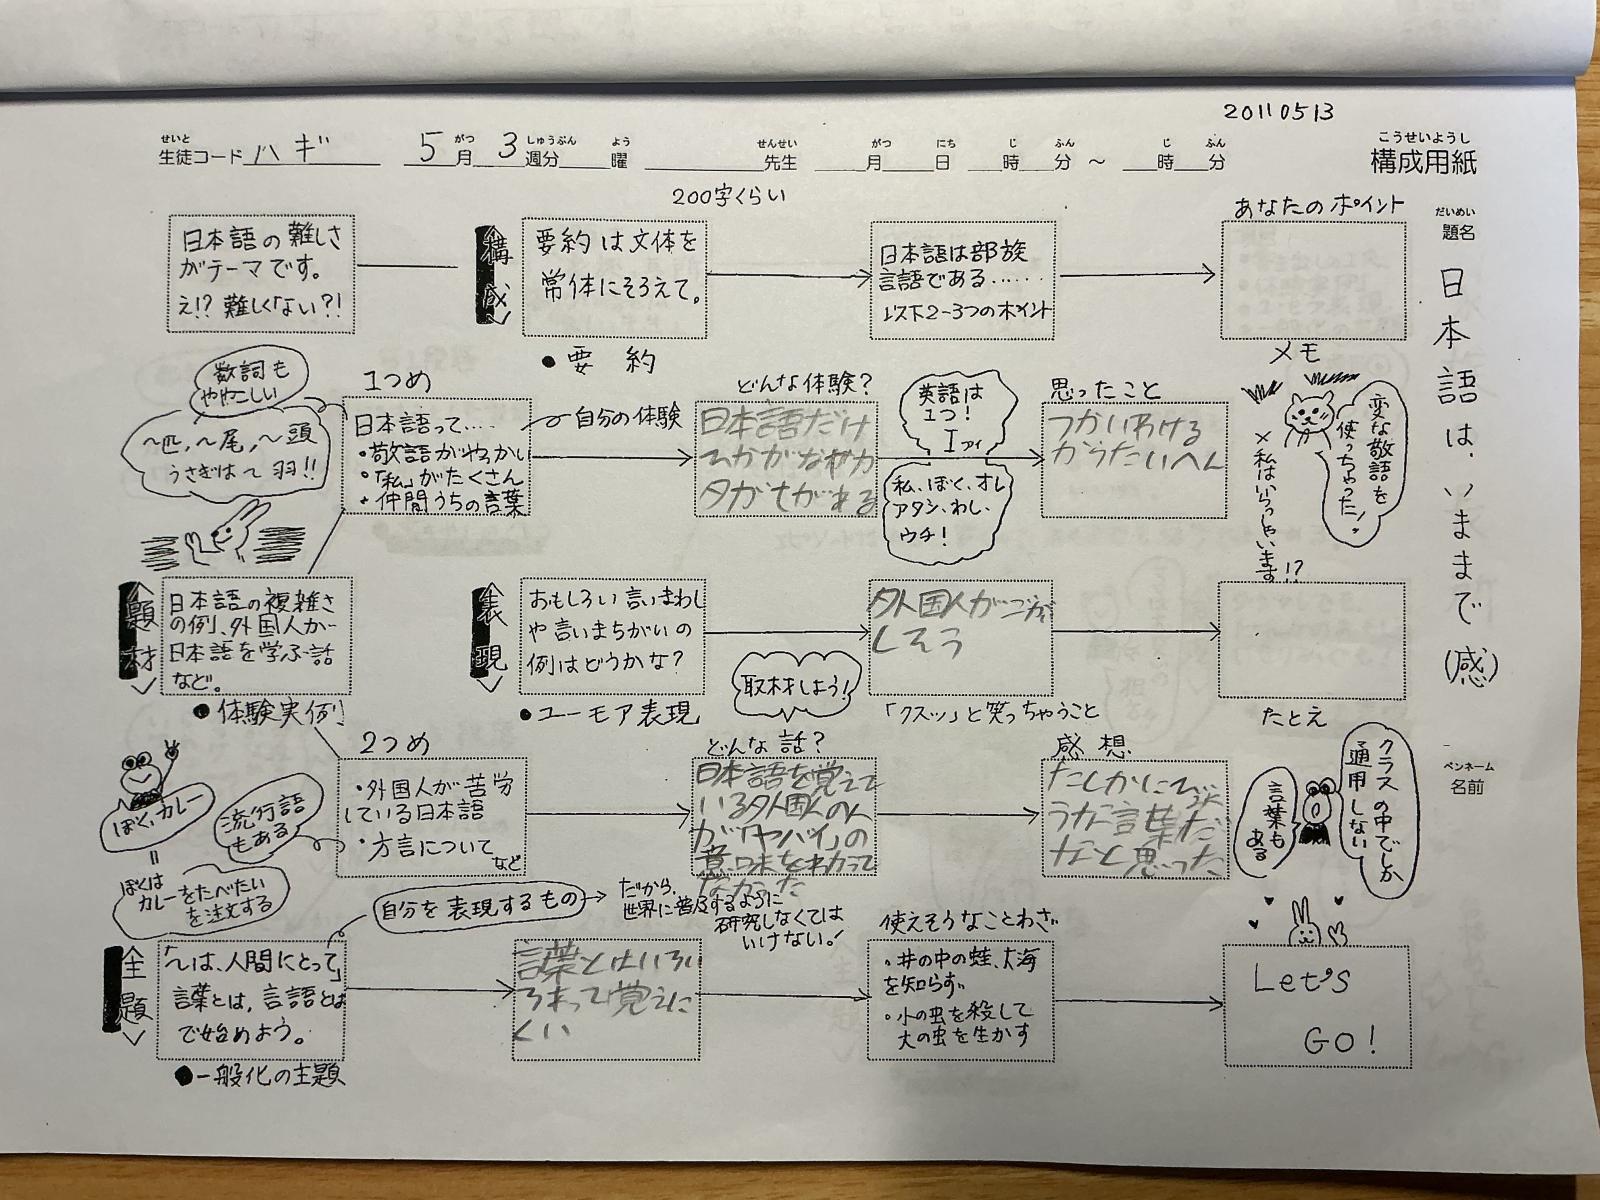 20110513
せいと がつ しゅうぶん よう せんせい がつ にち じ ふん じ ふん
生徒コード ハギ 5月 3週分 曜 先生 月 日 時 分 ～ 時 分
こうせいようし
構成用紙
200字くらい
だいめい
題名
日本語は、いままで(感)
ペンネーム
名前
日本語の難しさ
がテーマです。
え!? 難しくない?!
構成
要約は文体を
常体にそろえて。
●要約
日本語は部族
言語である……
以下2-3つのポイント
あなたのポイント
数詞も
ややこしい
～匹、～尾、～頭
うさぎは～羽!!
1つめ
日本語って……
・敬語がやっかい
・「私」がたくさん
・仲間うちの言葉
自分の体験
どんな体験?
日本語だけ
ひらがなやカ
タカナがある
英語は
1つ!
I アイ
私、ぼく、オレ
アタシ、わし、
ウチ!
思ったこと
つかいわける
からたいへん
メモ
変な敬語を
使っちゃった!
×私はいらっしゃいます!?
題材
日本語の複雑さ
の例、外国人が
日本語を学ぶ話
など。
●体験実例
表現
おもしろい言いまわし
や言いまちがいの
例はどうかな?
●ユーモア表現
取材しよう!
外国人が
しそう
「クスッ」と笑っちゃうこと
たとえ
ぼく、カレー
=
ぼくは
カレーをたべたい
を注文する
流行語
もある
2つめ
・外国人が苦労
している日本語
・方言について
など
どんな話?
日本語を覚えて
いる外国人の人
が「ヤバイ」の
意味をわかって
なかった
感想
たしかに
言葉だ
なと思った
クラスの中でしか
通用しない
言葉も
ある
主題
「～は、人間にとって」
言葉とは、言語とは
で始めよう。
●一般化の主題
自分を表現するもの
だから、
世界に普及するように
研究しなくては
いけない。!
言葉とはいろい
ろあって覚えに
くい
使えそうなことわざ
・井の中の蛙、大海
を知らず
・小の虫を殺して
大の虫を生かす
Let's
GO!